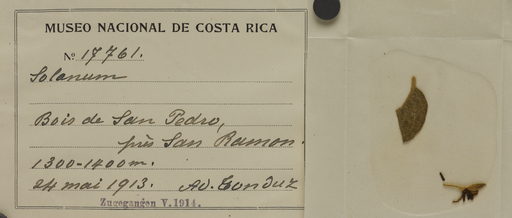 MUSEO NACIONAL DE COSTA RICA
No 17761.
Solanum
Bois de San Pedro,
près San Ramon.
1300-1400m.
24 mai 1913. Ad. Tonduz
Zugegangen V.1914.